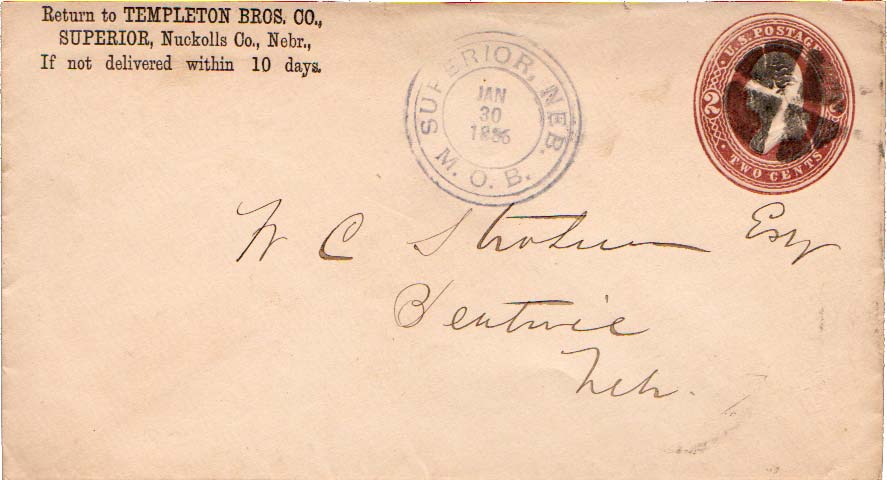 Return to TEMPLETON BROS. CO.,
SUPERIOR, Nuckolls Co., Nebr.,
If not delivered within 10 days.
SUPERIOR, NEB.
JAN
30
1886
M. O. B.
U.S. POSTAGE
2
TWO CENTS
W C Esq
Neb.